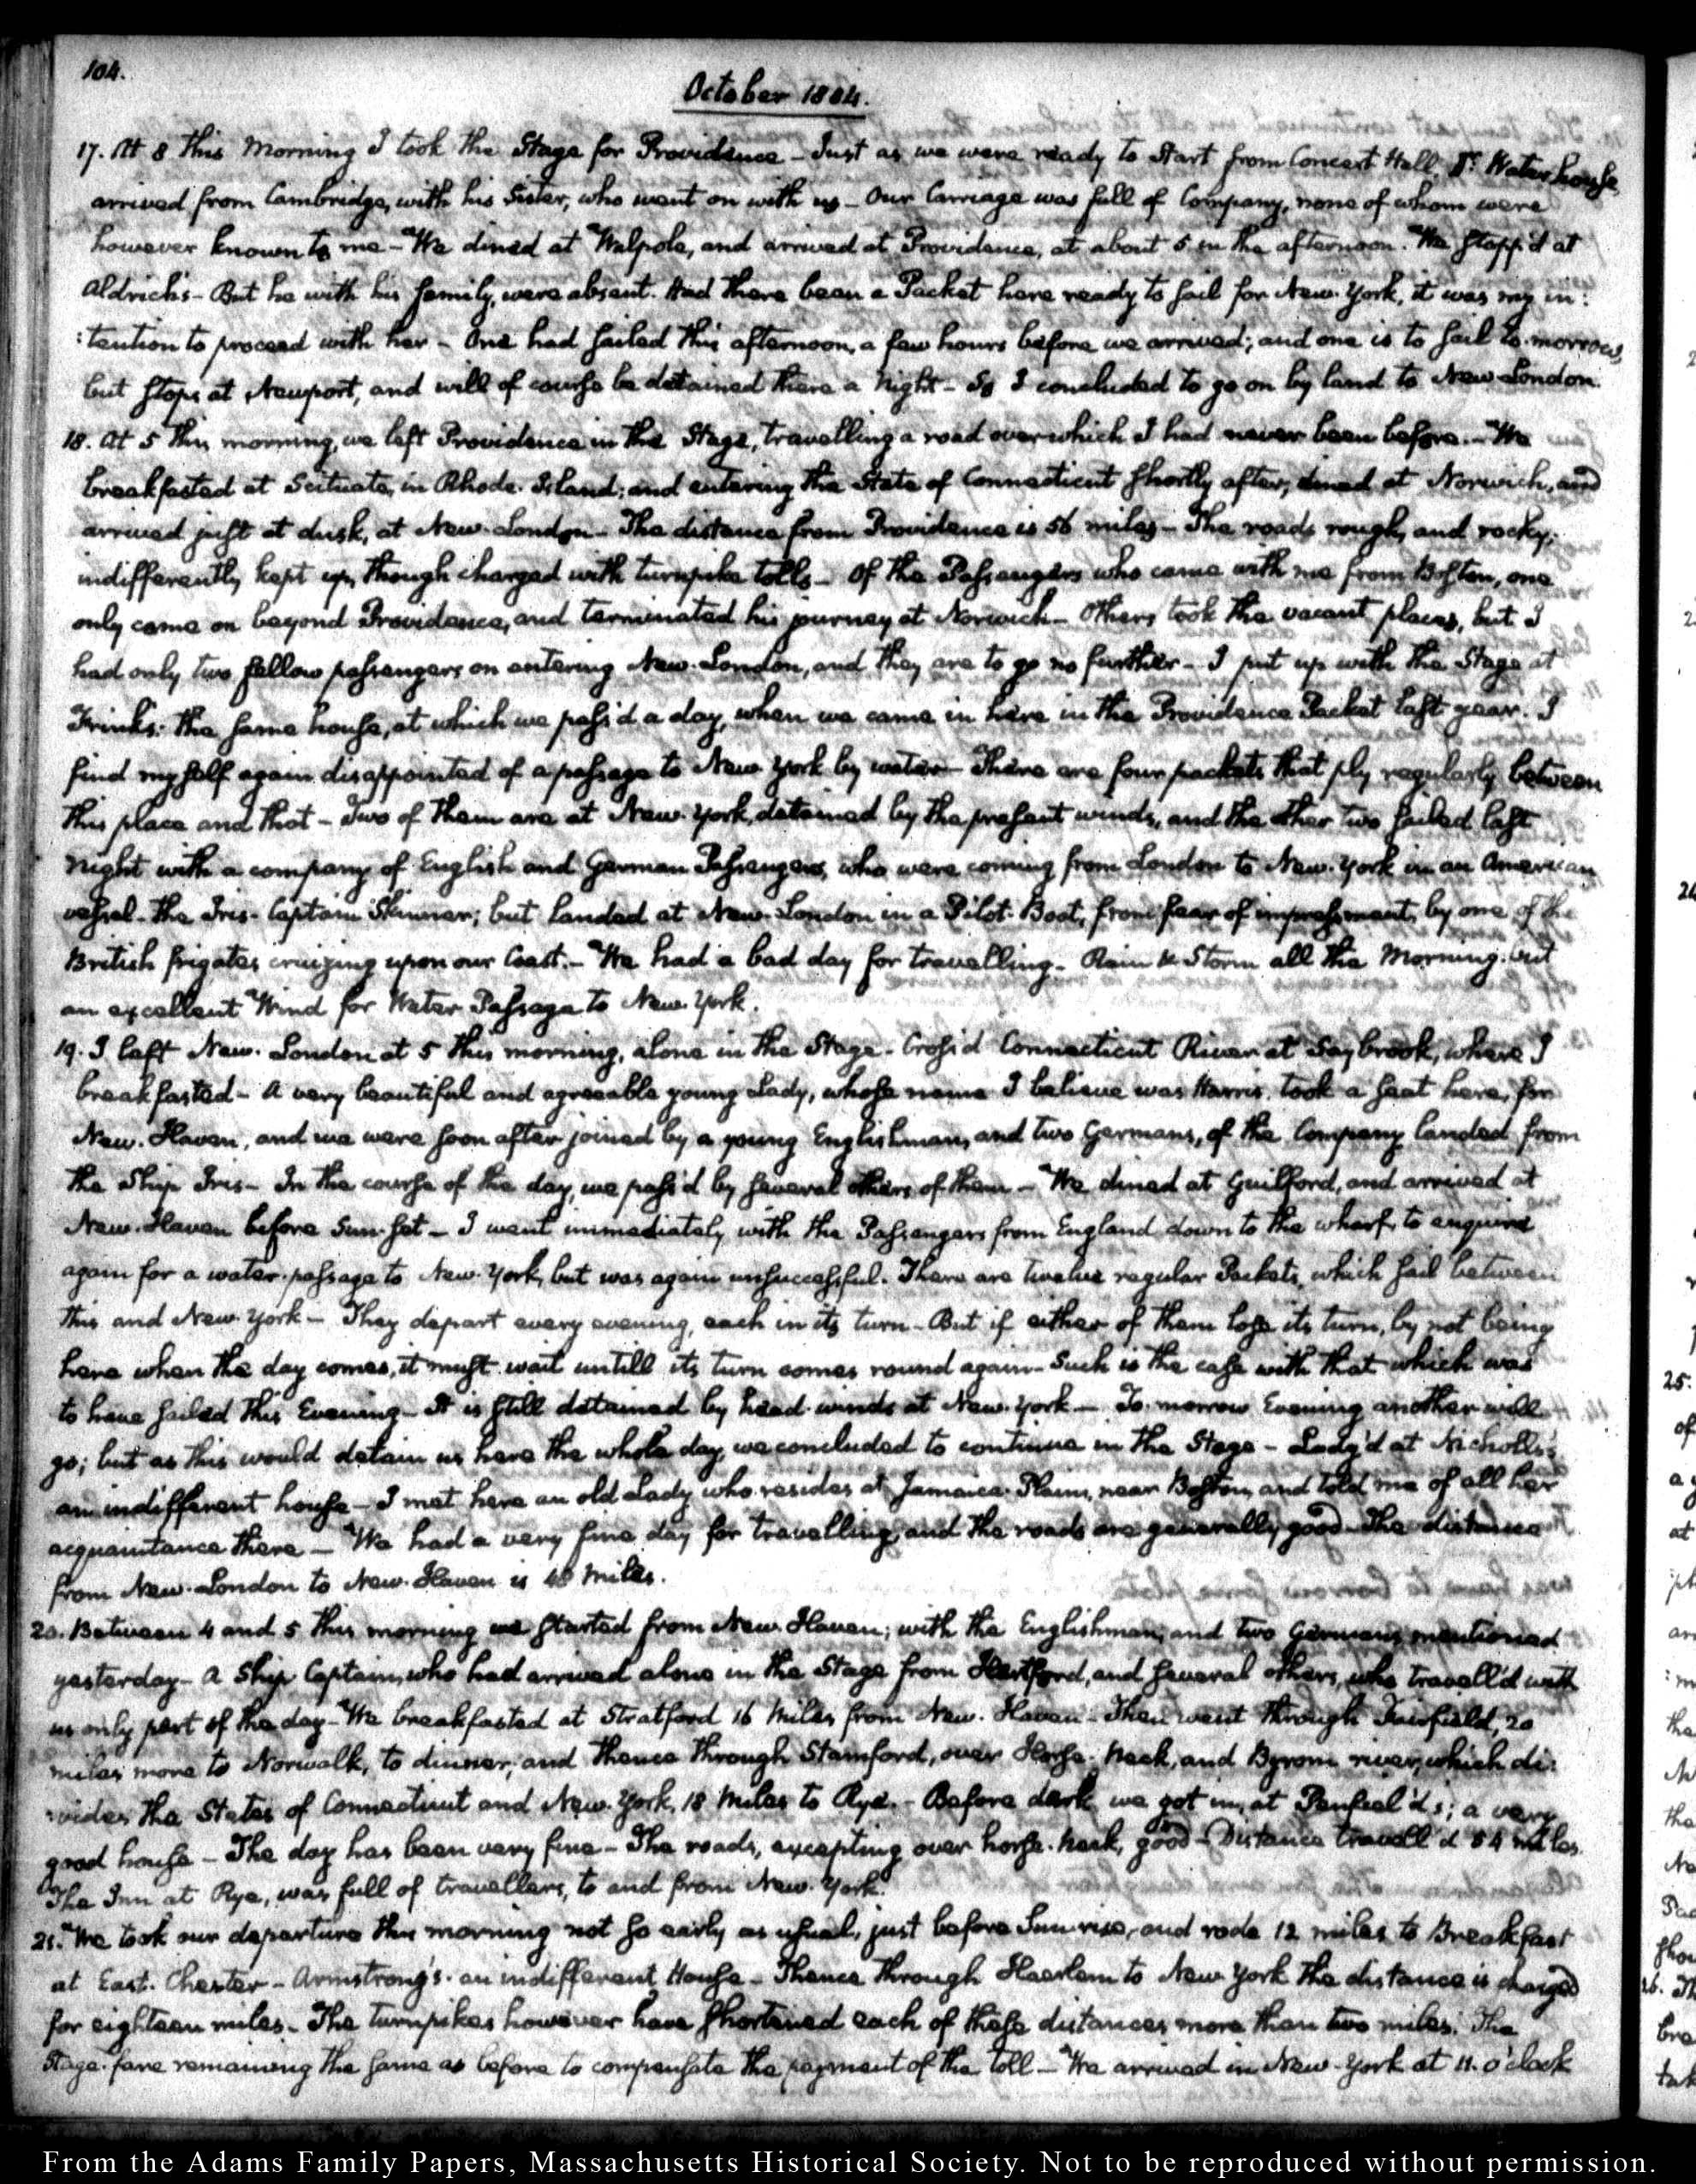 104.
October 1804.
17. At 8 this Morning I took the Stage for Providence - Just as we were ready to start from Concert Hall, Dr. Waterhouse
arrived from Cambridge, with his Sister, who went on with us - Our Carriage was full of Company, none of whom were
however known to me - We dined at Walpole, and arrived at Providence, at about 5 in the afternoon. We stopp'd at
Aldrich's - But he with his family, were absent. Had there been a Packet here ready to sail for New-York, it was my in:
:tention to proceed with her - One had sailed this afternoon, a few hours before we arrived; and one is to sail to-morrow,
but stops at Newport, and will of course be detained there a night - So I concluded to go on by land to New London.
18. At 5 this morning, we left Providence in the Stage, travelling a road over which I had never been before. - We
breakfasted at Scituate, in Rhode-Island; and entering the State of Connecticut shortly after, dined at Norwich, and
arrived just at dusk, at New-London - The distance from Providence is 56 miles - The roads rough, and rocky;
indifferently kept up, though charged with turnpike tolls - Of the Passengers who came with me from Boston, one
only came on beyond Providence, and terminated his journey at Norwich - Others took the vacant places, but I
had only two fellow passengers on entering New-London, and they are to go no further - I put up with the Stage at
Frink's: the same house, at which we pass'd a day, when we came in here in the Providence Packet last year. I
find myself again disappointed of a passage to New York by water - There are four packets that ply regularly between
this place and that - Two of them are at New-York, detained by the present winds, and the other two sailed last
night with a company of English and German Passengers, who were coming from London to New-York in an American
vessel - the Iris - Captain Skinner; but landed at New-London in a Pilot-Boat, from fear of impressment, by one of the
British frigates cruizing upon our Coast. - We had a bad day for travelling - Rain & Storm all the Morning: but
an excellent Wind for Water Passage to New-York.
19. I left New-London at 5 this morning, alone in the Stage - Cross'd Connecticut River at Saybrook, where I
breakfasted - A very beautiful and agreeable young Lady, whose name I believe was Harris, took a seat here, for
New-Haven, and we were soon after joined by a young Englishman, and two Germans, of the Company landed from
the Ship Iris - In the course of the day, we pass'd by several others of them - We dined at Guilford, and arrived at
New-Haven before Sun-set - I went immediately with the Passengers from England down to the wharf, to enquire
again for a water-passage to New-York, but was again unsuccessful. There are twelve regular Packets, which sail between
this and New-York - They depart every evening, each in its turn - But if either of them lose its turn, by not being
here when the day comes, it must wait untill its turn comes round again - Such is the case with that which was
to have sailed this Evening - It is still detained by head-winds at New-York - To-morrow Evening another will
go; but as this would detain us here the whole day, we concluded to continue in the Stage - Lodg'd at Nicholls's
an indifferent house - I met here an old Lady who resides at Jamaica-Plains, near Boston, and told me of all her
acquaintance there - We had a very fine day for travelling, and the roads are generally good - The distance
from New-London to New-Haven is miles.
20. Between 4 and 5 this morning we started from New-Haven; with the Englishman, and two Germans mentioned
yesterday - A Ship Captain, who had arrived alone in the Stage from Hartford, and several others, who travell'd with
us only part of the day - We breakfasted at Stratford 16 Miles from New-Haven - Then went through Fairfield, 20
miles more to Norwalk, to dinner; and thence through Stamford, over Horse-Neck, and Byrom river, which di:
:vides the States of Connecticut and New-York, 18 Miles to Rye. - Before dark we got in, at Penfield's; a very
good house - The day has been very fine - The roads, excepting over horse-neck, good - Distance travell'd 54 miles.
The Inn at Rye, was full of travellers, to and from New-York.
21. We took our departure this morning not so early as usual, just before Sunrise, and rode 12 miles to Breakfast
at East-Chester - Armstrong's - an indifferent House - Thence through Haerlem to New York the distance is charged
for eighteen miles - The turnpikes however have shortened each of these distances more than two miles. The
Stage-fare remaining the same as before to compensate the payment of the toll - We arrived in New-York at 11. o'clock
2
2
24
25.
of
at
26. Th
From the Adams Family Papers, Massachusetts Historical Society. Not to be reproduced without permission.